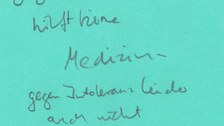 hilft keine
Medizin
gegen Intoleranz leider
auch nicht